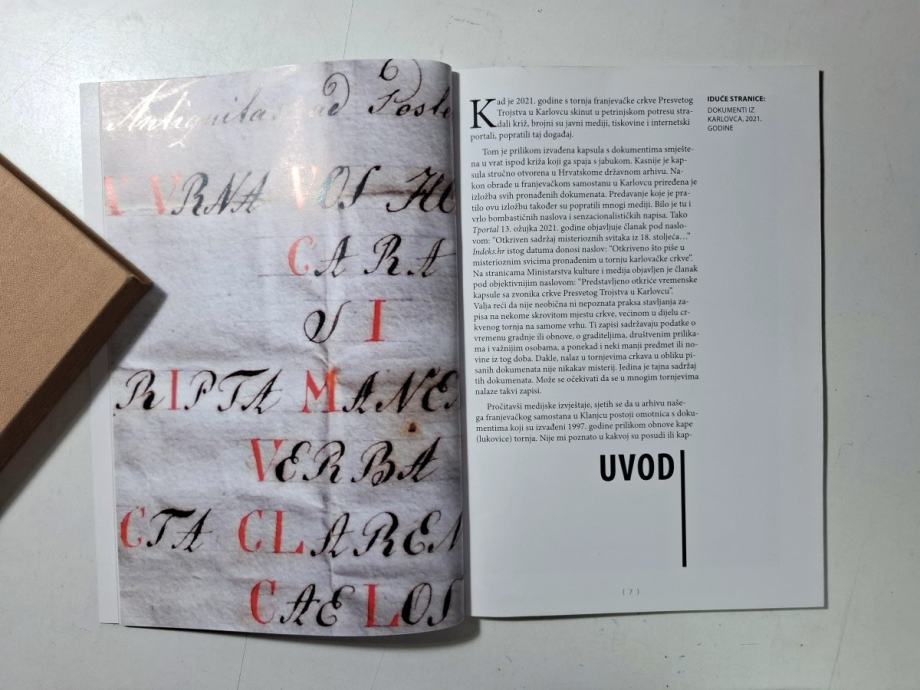 Antiquitas ad Poste
VRNA VOS HO
CARA
VI
RIPTA MANE
VERBA
CTA CLAREN
CAELOS
Kad je 2021. godine s tornja franjevačke crkve Presvetog
Trojstva u Karlovcu skinut u petrinjskom potresu stra-
dali križ, brojni su javni mediji, tiskovine i internetski
portali, popratili taj događaj.
Tom je prilikom izvađena kapsula s dokumentima smješte-
na u vrat ispod križa koji ga spaja s jabukom. Kasnije je kap-
sula stručno otvorena u Hrvatskome državnom arhivu. Na-
kon obrade u franjevačkom samostanu u Karlovcu priređena je
izložba svih pronađenih dokumenata. Predavanje koje je pra-
tilo ovu izložbu također su popratili mnogi mediji. Bilo je tu i
vrlo bombastičnih naslova i senzacionalističkih napisa. Tako
Tportal 13. ožujka 2021. godine objavljuje članak pod naslo-
vom: "Otkriven sadržaj misterioznih svitaka iz 18. stoljeća…"
Indeks.hr istog datuma donosi naslov: "Otkriveno što piše u
misterioznim svicima pronađenim u tornju karlovačke crkve".
Na stranicama Ministarstva kulture i medija objavljen je članak
pod objektivnijim naslovom: "Predstavljeno otkriće vremenske
kapsule sa zvonika crkve Presvetog Trojstva u Karlovcu".
Valja reći da nije neobična ni nepoznata praksa stavljanja za-
pisa na nekome skrovitom mjestu crkve, većinom u dijelu cr-
kvenog tornja na samome vrhu. Ti zapisi sadržavaju podatke o
vremenu gradnje ili obnove, o graditeljima, društvenim prilika-
ma i važnijim osobama, a ponekad i neki manji predmet ili no-
vine iz tog doba. Dakle, nalaz u tornjevima crkava u obliku pi-
sanih dokumenata nije nikakav misterij. Jedina je tajna sadržaj
tih dokumenata. Može se očekivati da se u mnogim tornjevima
nalaze takvi zapisi.
Pročitavši medijske izvještaje, sjetih se da u arhivu naše-
ga franjevačkog samostana u Klanjcu postoji omotnica s doku-
mentima koji su izvađeni 1997. godine prilikom obnove kape
(lukovice) tornja. Nije mi poznato u kakvoj su posudi ili kap-
IDUĆE STRANICE:
DOKUMENTI IZ
KARLOVCA, 2021.
GODINE
UVOD
( 7 )